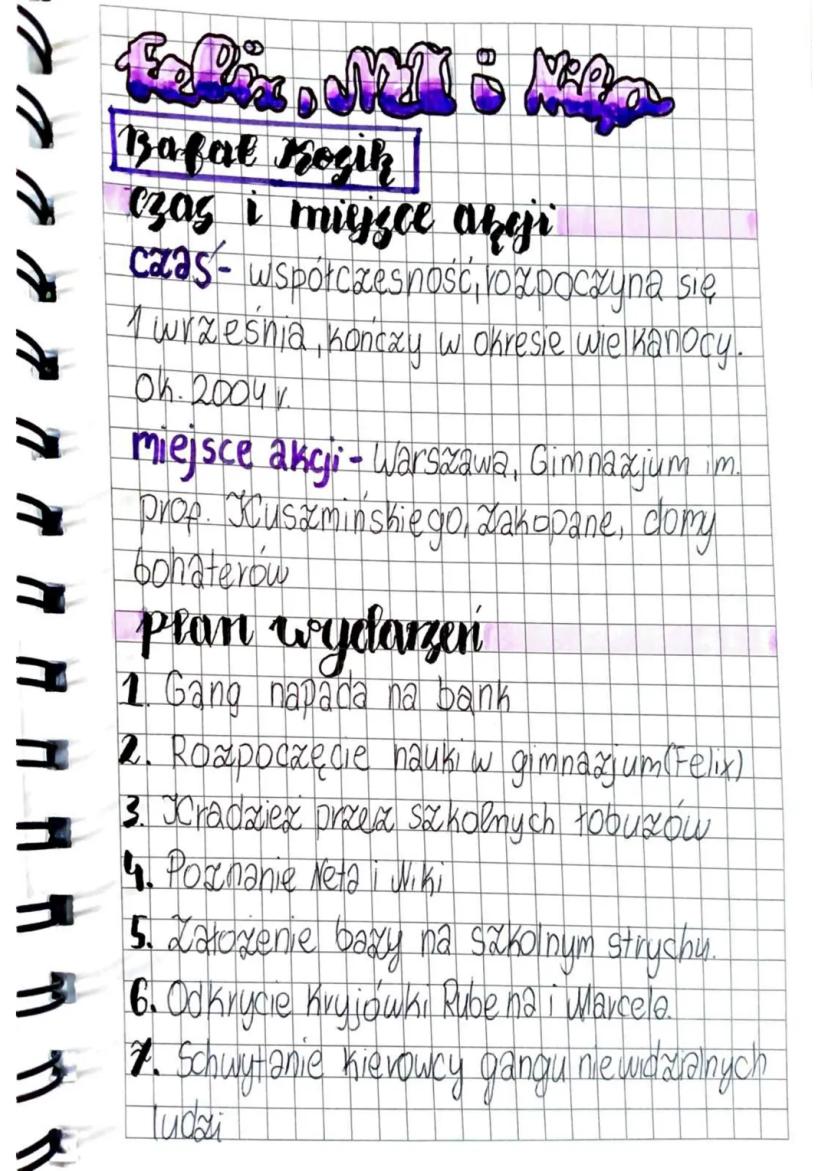 Felix, Net i Nika
Rafał Kosik
czas i miejsce akcji
czas - współczesność, rozpoczyna się
1 września, kończy w okresie wielkanocy.
ok. 2004 r.
miejsce akcji - Warszawa, Gimnazjum im.
prof. Kuszmińskiego, Zakopane, domy
bohaterów
plan wydarzeń
1. Gang napada na bank
2. Rozpoczęcie nauki w gimnazjum (Felix)
3. Kradzież przez szkolnych łobuzów
4. Poznanie Neta i Niki
5. Założenie bazy na szkolnym strychu.
6. Odkrycie kryjówki Rubena i Marcela.
7. Schwytanie kierowcy gangu niewidzialnych
ludzi